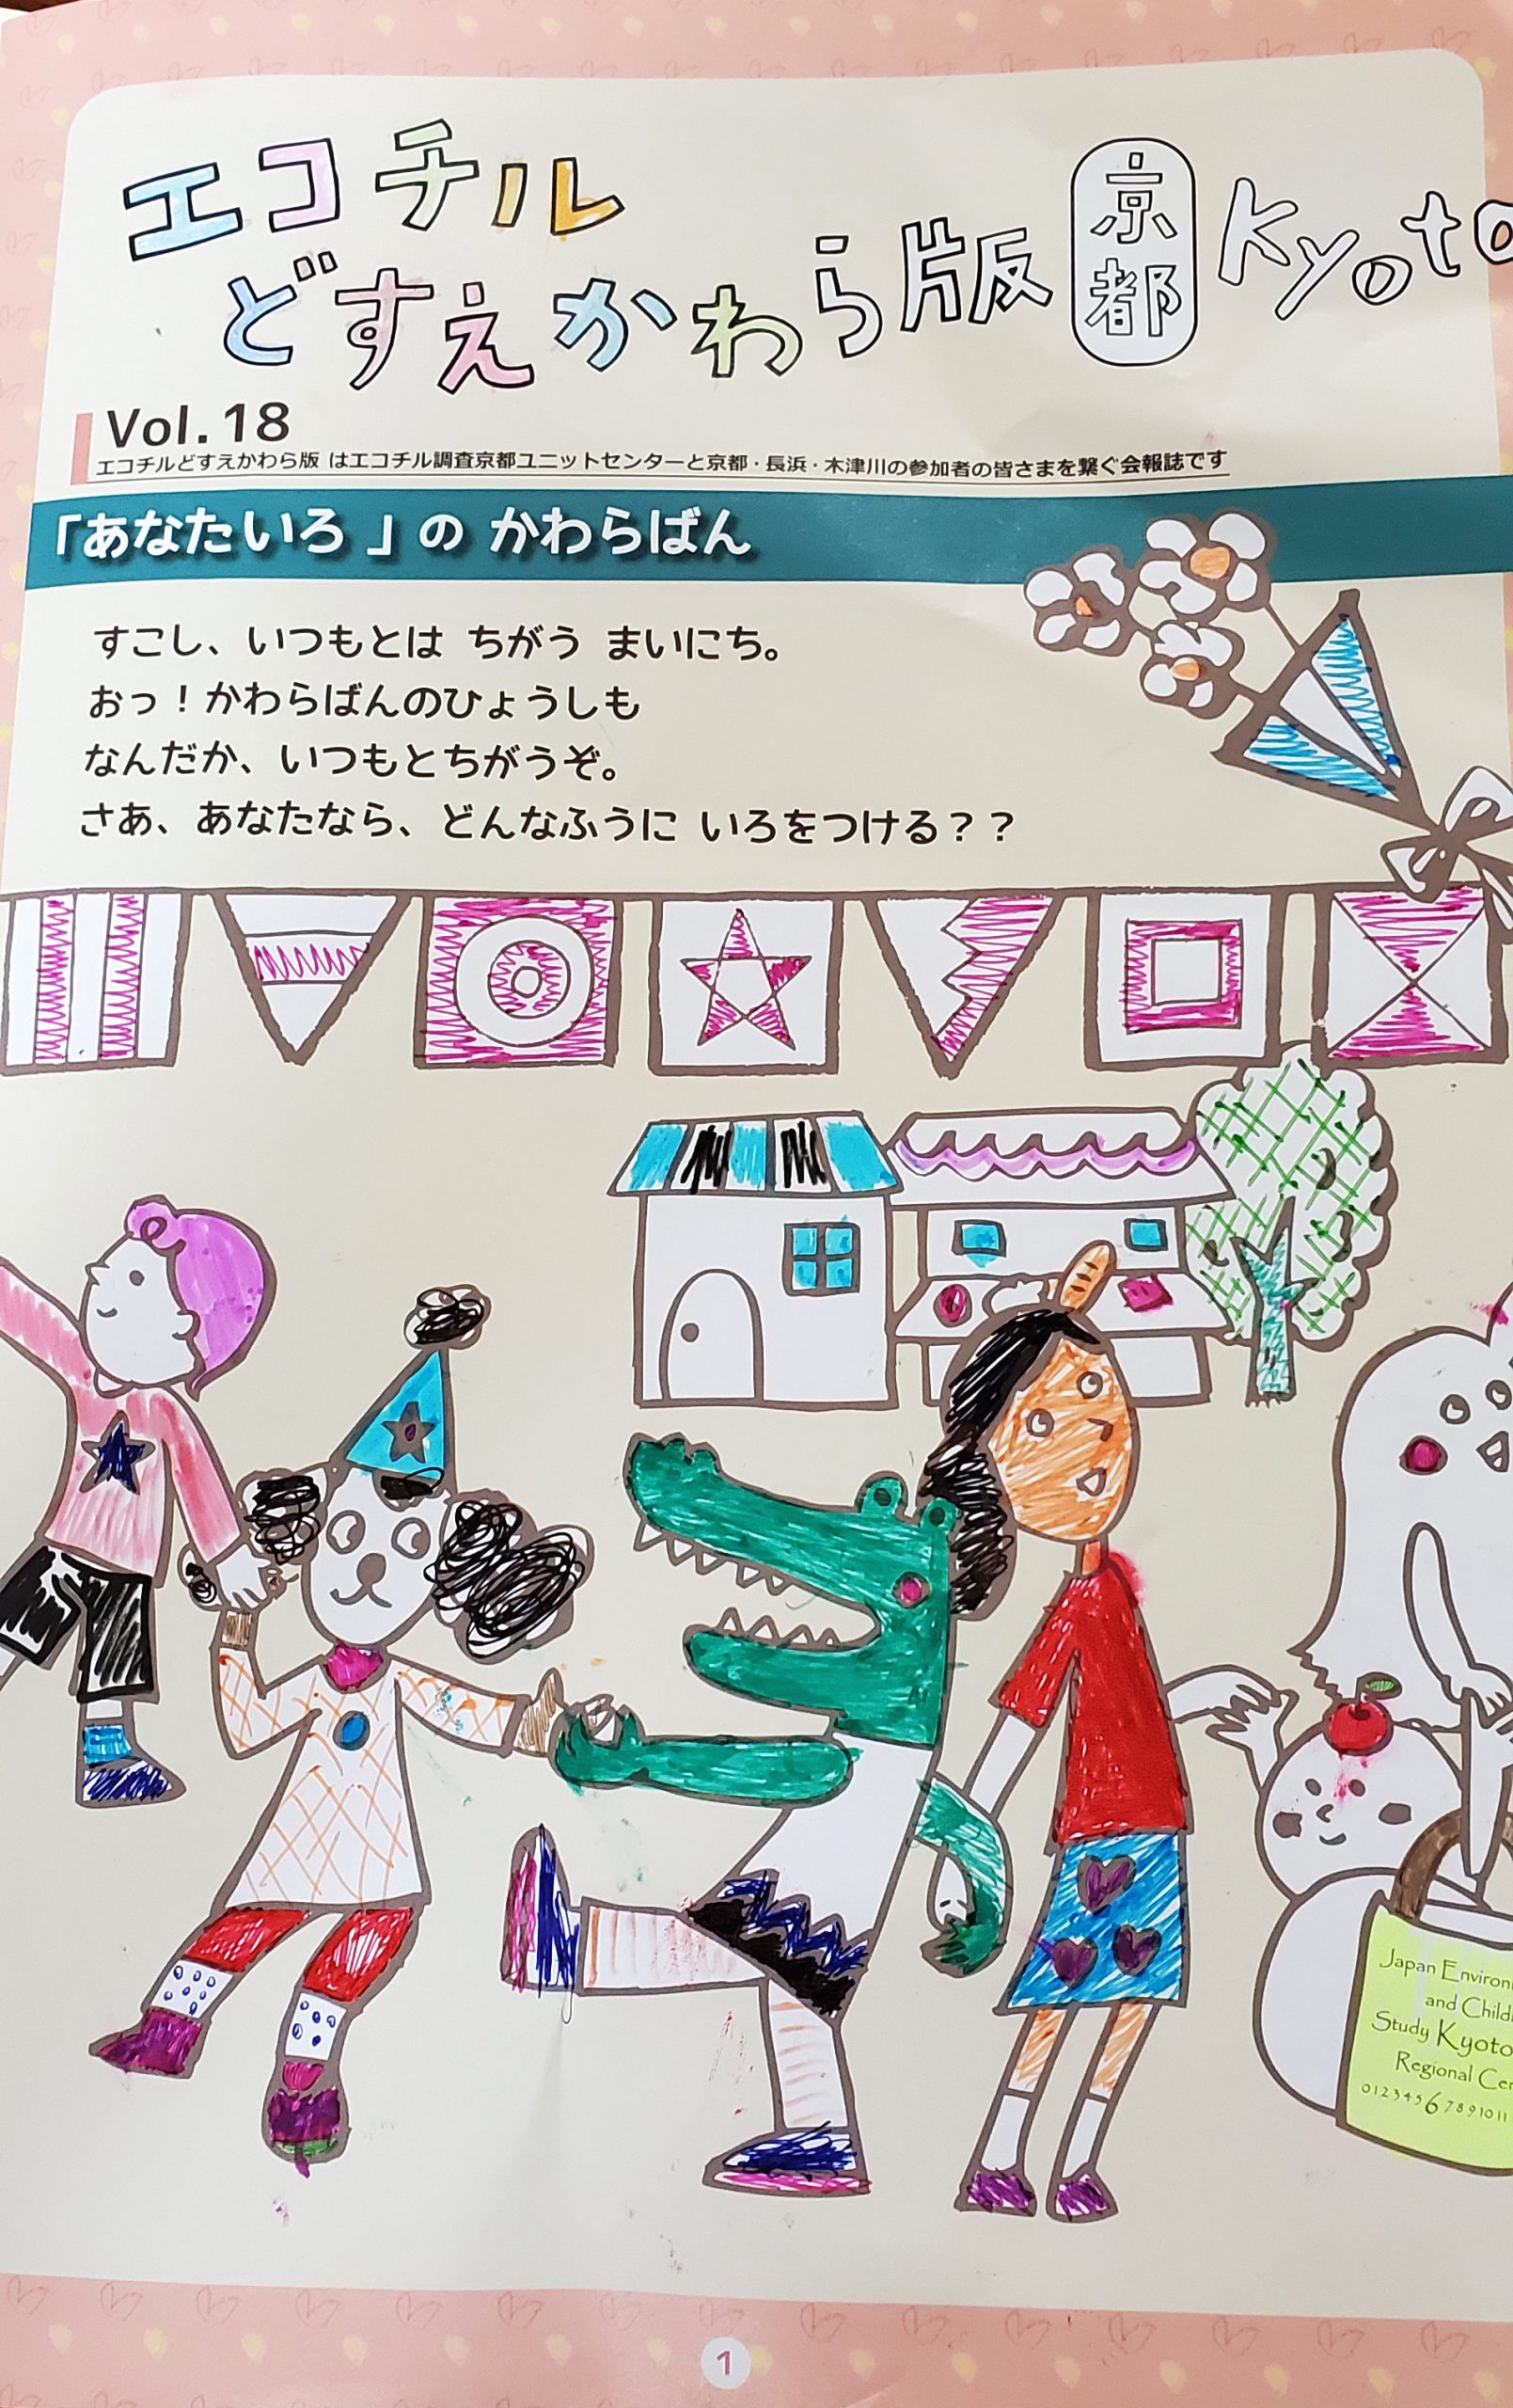 エコチル
どすえかわら版 京都 Kyoto
Vol.18
エコチルどすえかわら版 はエコチル調査京都ユニットセンターと京都・長浜・木津川の参加者の皆さまを繋ぐ会報誌です
「あなたいろ 」の かわらばん
すこし、いつもとは ちがう まいにち。
おっ！かわらばんのひょうしも
なんだか、いつもとちがうぞ。
さあ、あなたなら、どんなふうに いろをつける？？
Japan
and
Study Kyoto
Regional
01234567891011
1